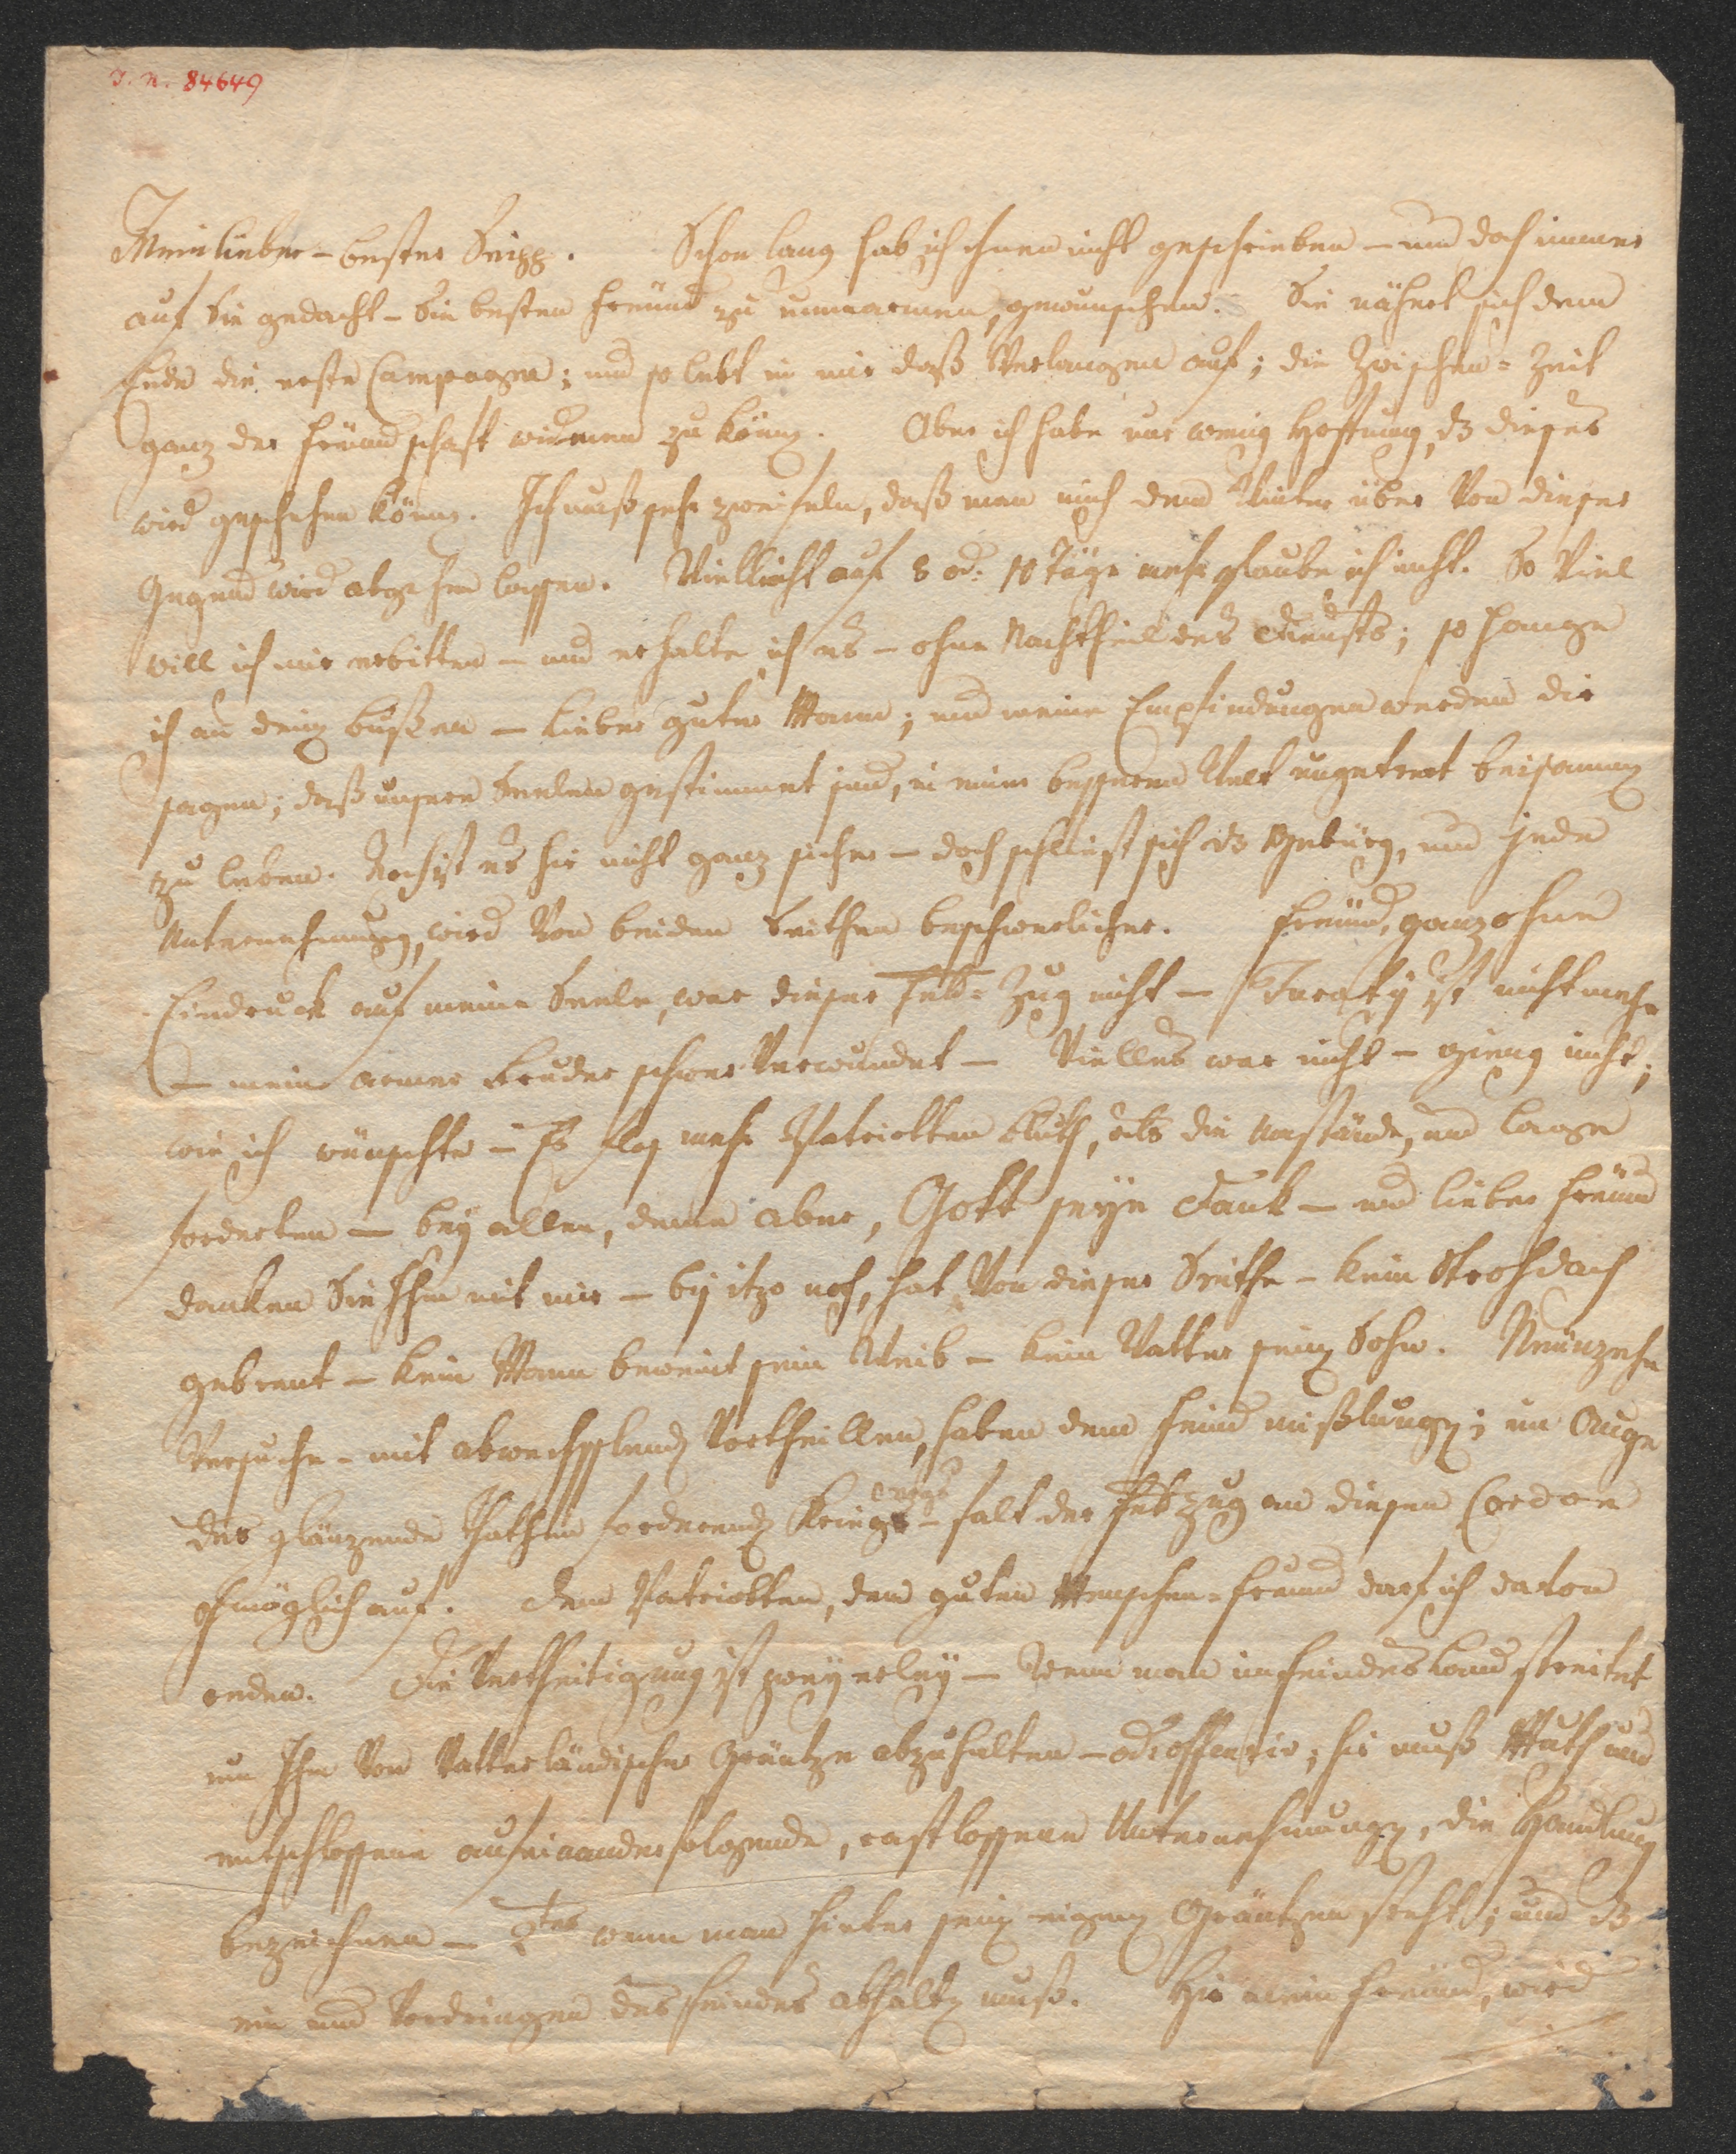 I. N. 84649
Mein lieber – bester Seipp. Schon lang hab ich ihnen nicht geschrieben – und doch immer
auf Sie gedacht – Sie besten Freünd zu umarmen, gewunschen. Sie nähert sich dem
Ende die erste Campagne; und so lebt in mir daß Verlangen auf; die Zwischen-Zeit
ganz der Freündschaft widmen zu könn. Aber ich habe nur wenig Hoffnung, dß dieses
wird geschehen könn. Ich muß sehr zweifeln, daß man mich den Winter über Von dieser
Gegend wird abgehen lassen. Villeicht auf 8 od: 10 Täge mehr glaube ich nicht. So Viel
will ich mir erbitten – und erhalte ich es – ohne Nachtheil des Diensts; so hange
ich an dein busen – lieber guter Mann; und meine Empfindungen werden dir
sagen; daß unsere Seelen gestimmet sind, in einer besseren Welt ungetrent beisamen
zu leben. Noch ist es hir nicht ganz sicher – doch schliest sich dß Gebürg, und jede
Unternehmung, wird Von beiden Seithen beschwerlicher. Freünd, ganz ohne
Eindruck auf meine Seele, war dieser Feld-Zug nicht – ist nicht mehr
– mein armer Bruder schwer Verwundet – Villes war nicht – gieng nicht;
wie ich wünschte – Es flos mehr Patriotten Bluth, als die Umstände, und Lage
forderten – bey allen, deme aber, Gott seye Dank – und lieber Freünd
danken Sie Ihm mit mir – biß itzo noch, hat Von dieser Seithe – kein Strohdach
gebrent – kein Mann beweint sein Weib – kein Vatter sein Sohn. Neünzehn
Versuche – mit abwechsslend Vortheillen, haben dem Feind mißlungen; im Auge
des glänzende Thathen forderend Kriegs – falt der Feldzug an diesen Cordon
ohmöglich auf. Dem Patriotten, dem guten Menschen-Freünd darf ich davon
reden. Die Vertheitigung ist zweyerley – Wenn man im Feindes Land streitet
um Ihm Von Vatterländischer Gräntze abzuhalten – offensiv; hir muß Muth und
entschlossene aufeinanderfolgende, rastlossene Unternehmungen, die Handlung
bezeichnen – 2tens wenn man hinter sein eigen Gräntzen steht; und dß
ein und Vordringen des Feindes abhalten muß. Hir mein Freünd, wird